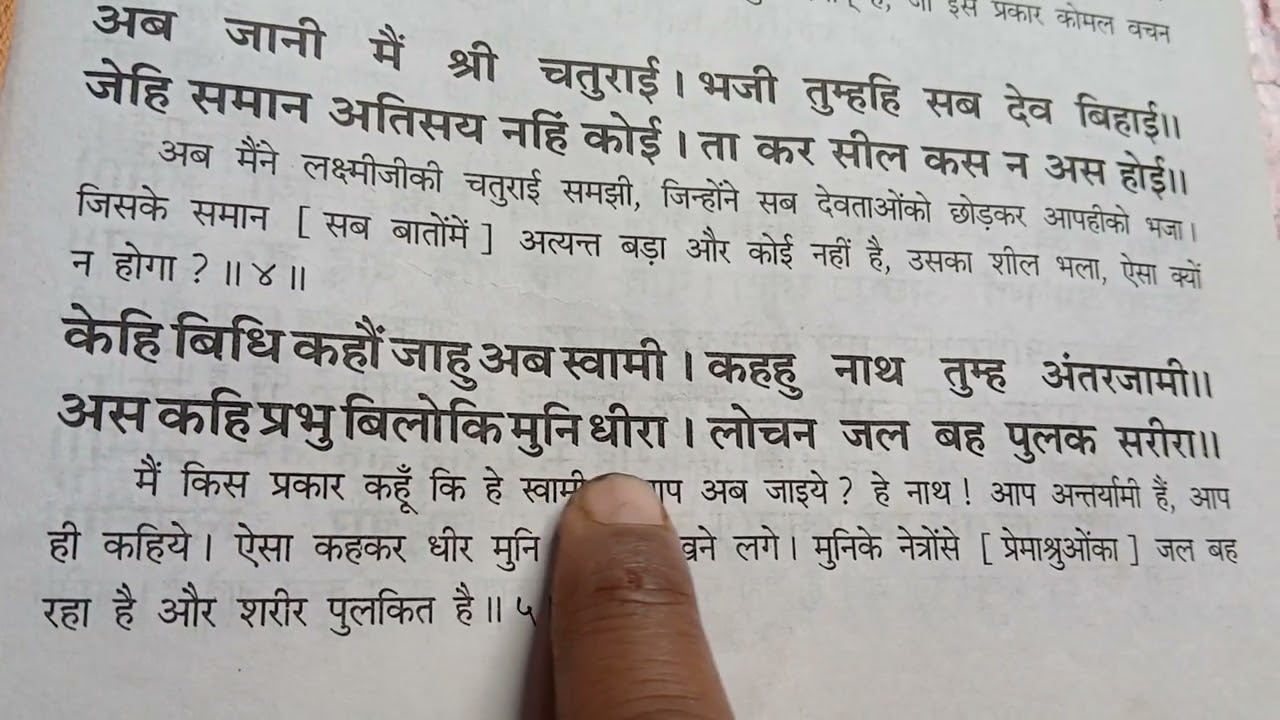 जो इस प्रकार कोमल वचन
अब जानी मैं श्री चतुराई। भजी तुम्हहि सब देव बिहाई॥
जेहि समान अतिसय नहिं कोई। ता कर सील कस न अस होई॥
अब मैंने लक्ष्मीजीकी चतुराई समझी, जिन्होंने सब देवताओंको छोड़कर आपहीको भजा।
जिसके समान [ सब बातोंमें ] अत्यन्त बड़ा और कोई नहीं है, उसका शील भला, ऐसा क्यों
न होगा ? ॥ ४ ॥
केहि बिधि कहौं जाहु अब स्वामी। कहहु नाथ तुम्ह अंतरजामी॥
अस कहि प्रभु बिलोकि मुनि धीरा। लोचन जल बह पुलक सरीरा॥
मैं किस प्रकार कहूँ कि हे स्वामी अब जाइये ? हे नाथ ! आप अन्तर्यामी हैं, आप
ही कहिये। ऐसा कहकर धीर मुनि लगे। मुनिके नेत्रोंसे [ प्रेमाश्रुओंका ] जल बह
रहा है और शरीर पुलकित है ॥ ५